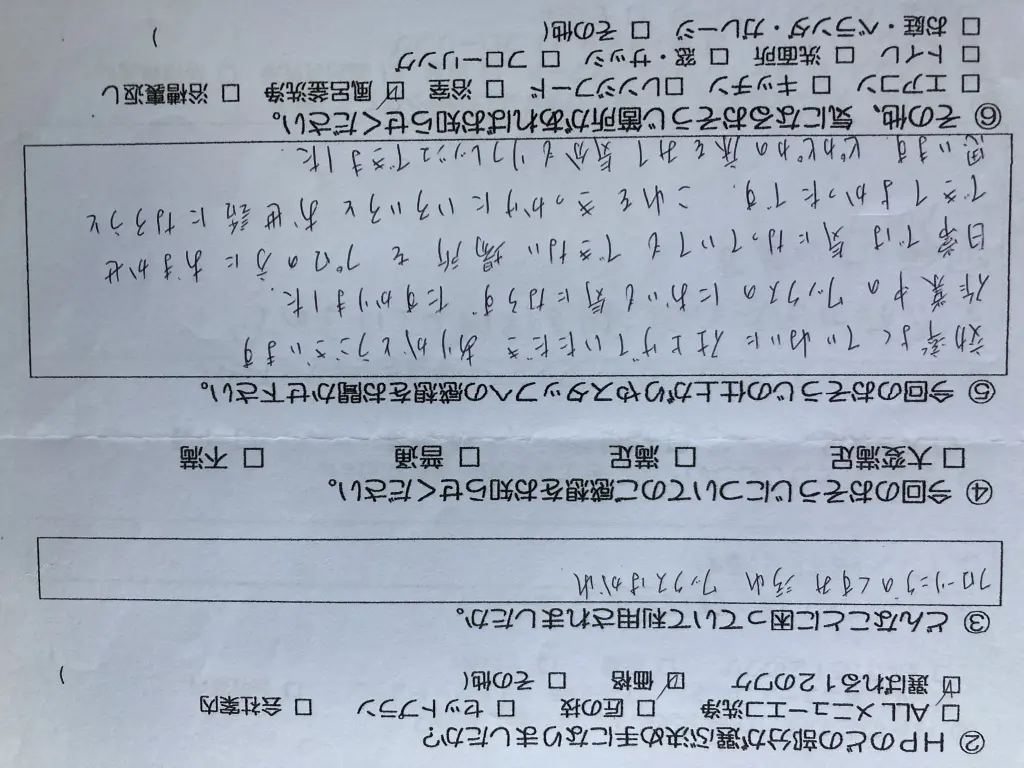 ② HPのどの部分が選ぶ決め手になりましたか?
□ ALLメニューエコ洗浄 □ 匠の技 □ セットプラン □ 会社案内
☑ 選ばれる12のワケ ☑ 価格 □ その他( )
③ どんなことに困っていて利用されましたか。
フローリングのくすみ 汚れ ワックスはがれ
④ 今回のおそうじについてのご感想をお知らせください。
□ 大変満足 □ 満足 □ 普通 □ 不満
⑤ 今回のおそうじの仕上がりやスタッフへの感想をお聞かせ下さい。
効率よく ていねいに 仕上げていただき ありがとうございます
作業中の ワックスの においも 気にならず たすかりました.
日常では 気になっていても できない 場所を プロの方に おまかせ
できて よかったです. これを きっかけに いろいろと お世話に なろうと
思います. ピカピカの 床をみて 気分も リフレッシュできました.
⑥ その他、気になるおそうじ箇所があればお知らせください。
□ エアコン □ キッチン □ レンジフード □ 浴室 ☑ 風呂釜洗浄 □ 浴槽裏返し
□ トイレ □ 洗面所 □ 窓・サッシ □ フローリング
□ お庭・ベランダ・ガレージ □ その他( )